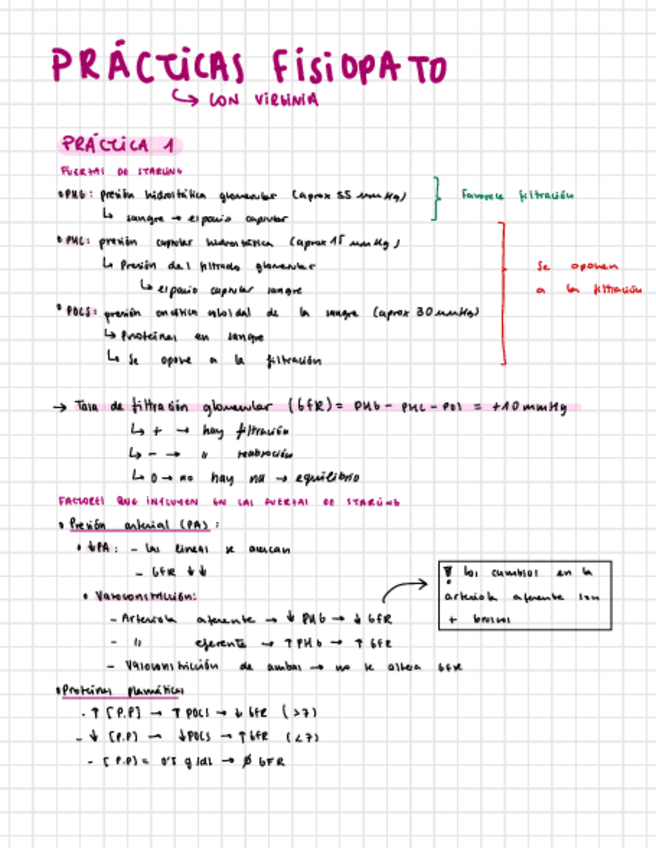 PRÁCTICAS FISIOPATO
↳ CON VIRGINIA
PRÁCTICA 1
FUERZAS DE STARLING
• PHG: presión hidrostática glomerular (aprox 55 mmHg)
Favorece filtración
↳ sangre → espacio capsular
• PHC: presión capsular hidrostática (aprox 15 mmHg)
↳ Presión del filtrado glomerular
Se oponen
↳ espacio capsular sangre
a la filtración
• POCS: presión oncótica coloidal de la sangre (aprox 30 mmHg)
↳ Proteínas en sangre
↳ Se opone a la filtración
→ Tasa de filtración glomerular (GFR) = PHG - PHC - POS = +10 mmHg
↳ + → hay filtración
↳ - → " reabsorción
↳ 0 → no hay na → equilibrio
FACTORES QUE INFLUYEN EN LAS FUERZAS DE STARLING
• Presión arterial (PA):
• ↓PA: - las líneas se acercan
- GFR ↓↓
• Vasoconstricción:
- Arteriola aferente → ↓ PHG → ↓ GFR
- " eferente → ↑ PHG → ↑ GFR
- Vasoconstricción de ambas → no se altera GFR
! los cambios en la
arteriola aferente son
+ bruscos
• Proteínas plasmáticas
- ↑ [P.P] → ↑ POCS → ↓ GFR (>7)
- ↓ [P.P] → ↓POCS → ↑ GFR (<7)
- [P.P] = g/dl → Ø GFR